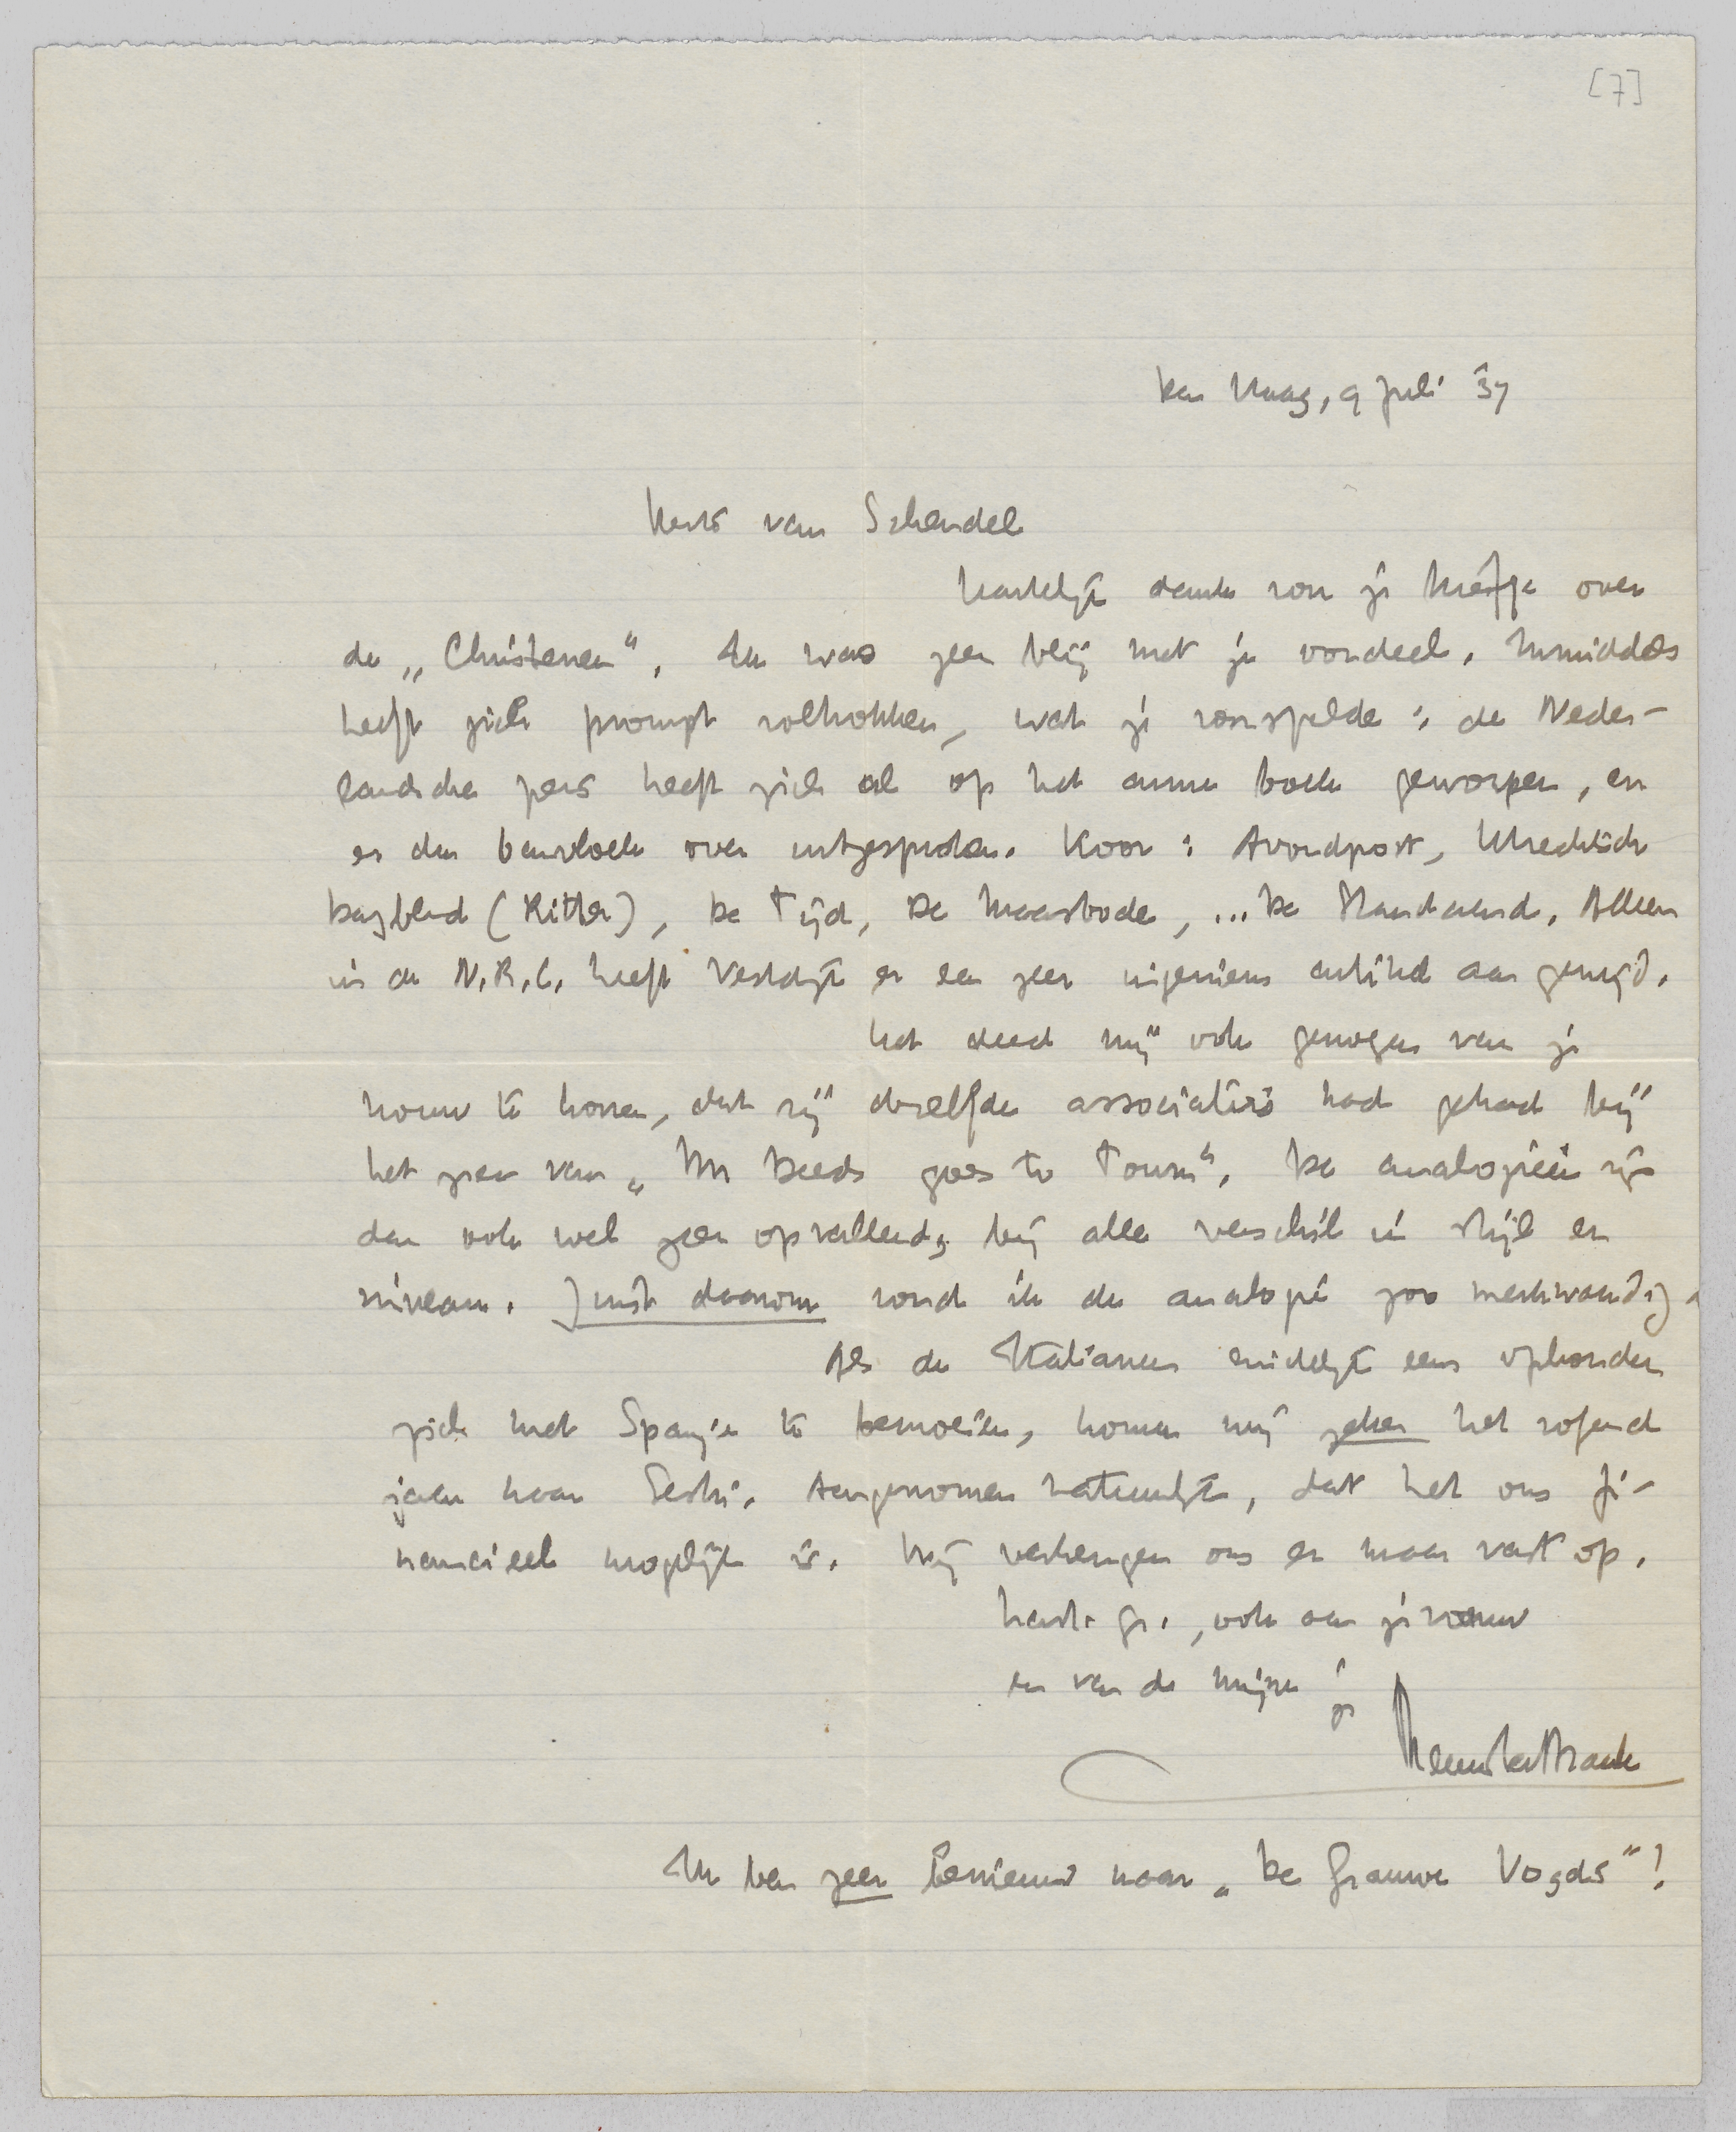 [7]
Den Haag, 9 Juli '37
Beste van Schendel
Hartelijk dank voor je briefje over
de „Christenen". Ik was zeer blij met je oordeel. Inmiddels
heeft zich prompt voltrokken, wat je voorspelde: de Neder-
landsche pers heeft zich al op het arme boek geworpen, en
er den banvloek over uitgesproken. Koor: Avondpost, Utrechtsch
Dagblad (Ritter), De Tijd, De Maasbode, ... De Standaard. Alleen
in de N.R.C. heeft Vestdijk er een zeer ingenieus artikel aan gewijd.
Het deed mij ook genoegen van je
vrouw te hooren, dat zij dezelfde associaties had gehad bij
het zien van „Mr Deeds goes to Town". De analogieën zijn
dan ook wel zeer opvallend, bij alle verschil in stijl en
niveau. Juist daarom vond ik de analogie zoo merkwaardig.
Als de Italianen eindelijk eens ophouden
zich met Spanje te bemoeien, komen wij zeker het volgend
jaar naar Sestri. Aangenomen natuurlijk, dat het ons fi-
nancieel mogelijk is. Wij verheugen ons er maar vast op.
Hart. gr., ook aan je vrouw
en van de mijne
je
Menno ter Braak
Ik ben zeer benieuwd naar „De Grauwe Vogels"!